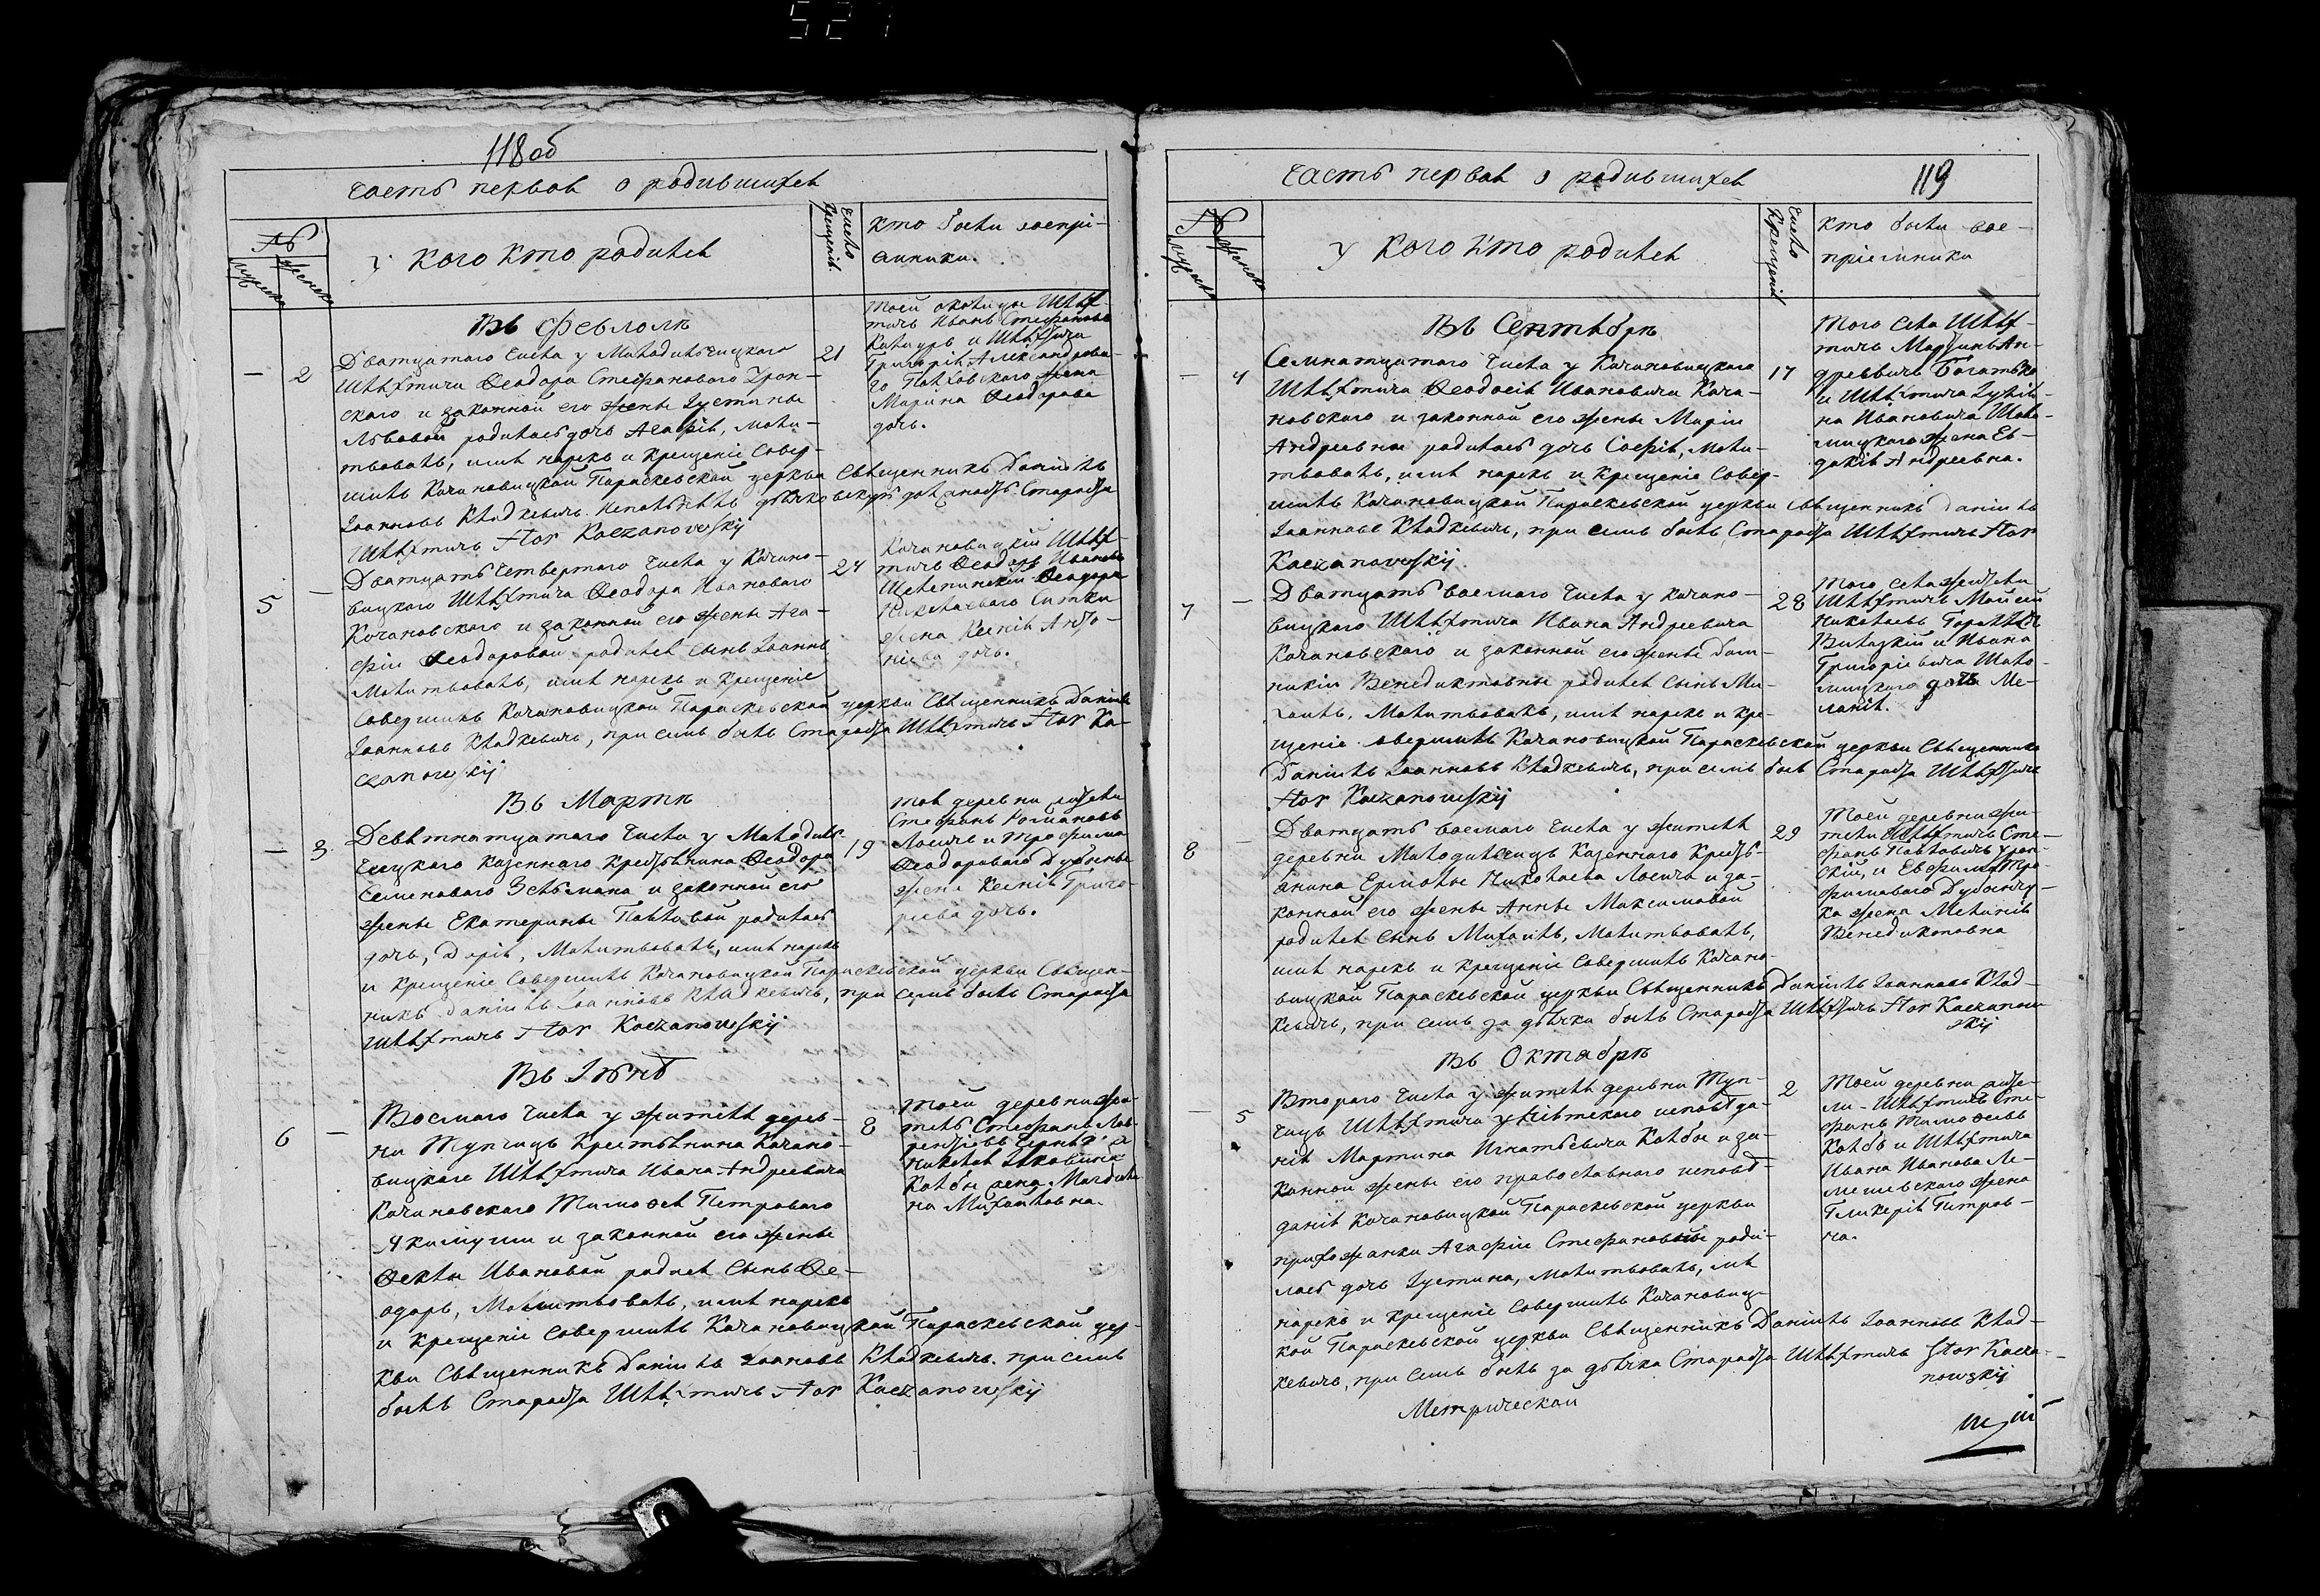 118об
Часть первая о родившихся
№
мужеска
женска
У кого кто родился
Число
Крещенія
кто были воспрі-
емники.
Въ Февралѣ
2
Дватцатаго числа у Малодильчицкаго
Шляхтича Ѳеодора Стефановаго Хрон-
скаго и законной его жены Іустины
Львовой родилась дочь Агафія, моли-
твовалъ, имя нарекъ и крещеніе Совер-
шилъ Качановицкой Параскевской церкви Священникъ Даніилъ
Іоанновъ Кладкевичъ. дьячковскую Староста
Шляхтичъ Kaczanowskij
21
Шлях-
тичъ Иванъ Стефановъ
и Шляхтича
Григорія Александрова-
го жена
Марина Ѳеодорова
дочь.
5
Дватцать четвертаго числа у Качано-
вицкаго Шляхтича Ѳеодора Ивановаго
Качановскаго и законной его жены Ага-
фіи Ѳеодоровой родился сынъ Іоаннъ
Молитвовалъ, имя нарекъ и крещеніе
Совершилъ Качановицкой Параскевской церкви Священникъ Даніилъ
Іоанновъ Кладкевичъ, при семъ былъ Староста Шляхтичъ Ka-
czanowskij
24
Качановицкій Шлях-
тичъ Ѳеодоръ Ивановъ
Ѳеодора
Николаеваго Ситки
жена Ксенія Анто-
ніева дочь.
Въ Мартѣ
3.
Девятнатцатаго числа у Малодиль-
чицкаго казеннаго крестьянина Ѳеодора
Семеноваго и законной его
жены Екатерины Павловой родилась
дочь, Дарія, Молитвовалъ, имя нарекъ
и крещеніе Совершилъ Качановицкой Параскевской церкви Священ-
никъ Даніилъ Іоанновъ Кладкевичъ, при семъ былъ Староста
Шляхтичъ Kaczanowskij
19
той деревни житель
Стефанъ Романовъ
Лосичъ и Трофима
Ѳеодороваго
жена Ксенія Григо-
рьева дочь.
Въ Іюнѣ
6
Восмаго числа у жителя дерев-
ни Тупчицъ Крестьянина Качано-
вицкаго Шляхтича Ивана Андреевича
Качановскаго Тимоѳея Петроваго
Якимуши и законной его жены
Ѳеклы Ивановой родился сынъ Ѳе-
одоръ, Молитвовалъ, имя нарекъ
и крещеніе Совершилъ Качановицкой Параскевской цер-
кви Священникъ Даніилъ Іоанновъ Кладкевичъ. при семъ
былъ Староста Шляхтичъ Kaczanowskij
8
Той деревни жи-
тель Стефанъ Лав-
рентіевъ и
Колбы жена Магдале-
на Михайловна.
119
Часть первая о родившихся
№
мужеска
женска
У кого кто родился
Число
Крещенія
кто были вос-
пріемники
Въ Сентябрѣ
4
Семнатцатаго числа у Качановицкаго
Шляхтича Ѳеодосія Ивановича Кача-
новскаго и законной его жены Маріи
Андреевны родилась дочь Софія, Моли-
твовалъ, имя нарекъ и крещеніе Совер-
шилъ Качановицкой Параскевской церкви Священникъ Даніилъ
Іоанновъ Кладкевичъ, при семъ былъ Староста Шляхтичъ
Kaczanowskij.
17
Того села Шлях-
тичъ Мартинъ Ан-
дреевичъ Богатко
и Шляхтича Іуліа-
на Ивановича Шоло-
мицкаго жена Ев-
докія Андреевна.
7
Дватцать восмаго числа у Качано-
вицкаго Шляхтича Ивана Андреевича
Качановскаго и законной его жены Дом-
никіи Венедиктовны родился сынъ Ми-
хаилъ, Молитвовалъ, имя нарекъ и кре-
щеніе совершилъ Качановицкой Параскевской церкви Священникъ
Даніилъ Іоанновъ Кладкевичъ, при семъ былъ Староста Шляхтичъ
Kaczanowskij
28
Того села жители
Шляхтичъ Мойсей
Николаевъ
и Ивана
Григоріевича Шоло-
мицкаго дочь Ме-
ланія.
8
Дватцать восмаго числа у жителя
деревни Малодильчицъ Казеннаго Кресть-
янина Ермолы Николаева Лосича и за-
конной его жены Анны Максимовой
родился сынъ Михаилъ, Молитвовалъ,
имя нарекъ и крещеніе Совершилъ Качано-
вицкой Параскевской церкви Священникъ Даніилъ Іоанновъ Клад-
кевичъ, при семъ за дьячка былъ Староста Шляхтичъ Kaczanow
skij
29
Той деревни жи-
тели Шляхтичъ Сте-
фанъ Павловичъ Хрон-
скій, и Евфима Тро-
фимоваго
жена Меланія
Венедиктовна
Въ Октябрѣ
5
Втораго числа у жителя деревни Туп-
чицъ Шляхтича уніятскаго исповѣда-
нія Мартина Игнатьевича Колбы и за-
конной жены его православнаго исповѣ-
данія Качановицкой Параскевской церкви
прихожанки Агафіи Стефановны роди-
лась дочь Іустина, Молитвовалъ, имя
нарекъ и крещеніе Совершилъ Качановиц-
кой Параскевской церкви Священникъ Даніилъ Іоанновъ Клад-
кевичъ, при семъ былъ за дьячка Староста Шляхтичъ Kacza-
nowskij
2
Той деревни жите-
ли Шляхтичъ Сте-
фанъ Тимоѳеевъ
Колба и Шляхтича
Ивана Иванова Ле-
шевскаго жена
Гликерія Петров-
на.
Метрической